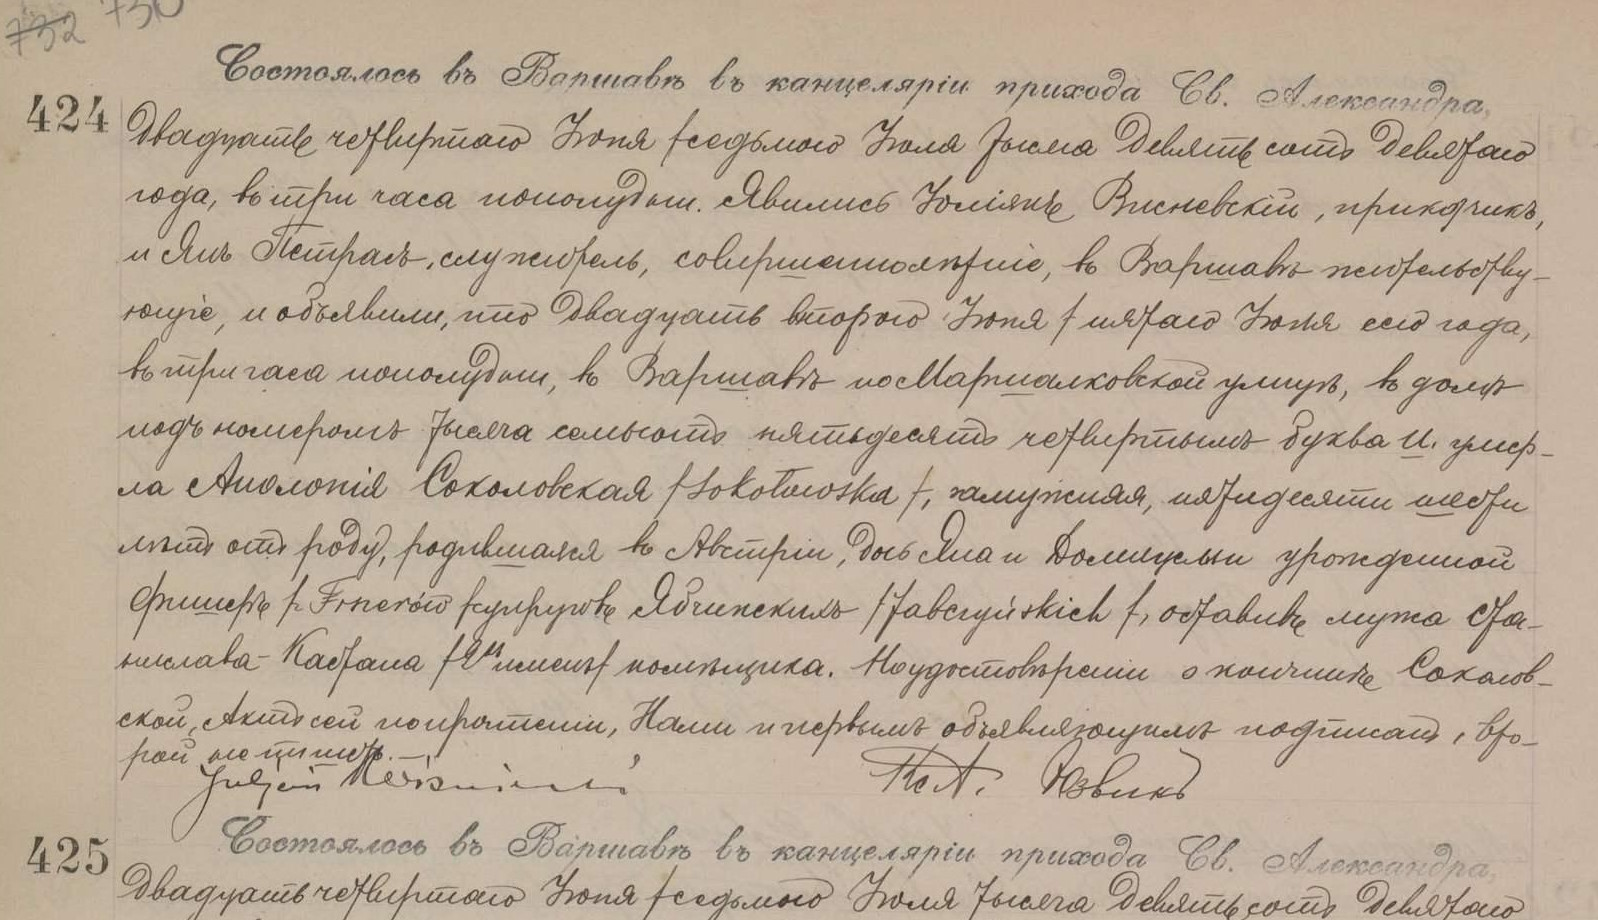 732 730
Состоялось въ Варшавѣ въ канцеляріи прихода Св. Александра,
424 Двадцать четвертаго Іюня /седьмого Іюля тысяча девятьсотъ девятаго
года, въ три часа пополудни. Явились Юліянъ Висневскій, прикащикъ,
и Янъ Петрасъ, служитель, совершеннолѣтніе, въ Варшавѣ жительству-
ющіе, и объявили, что двадцать второго Іюня / пятаго Іюля сего года,
въ три часа пополудни, въ Варшавѣ по Маршалковской улицѣ, въ домѣ
подъ номеромъ тысяча семьсотъ пятьдесятъ четвертымъ буква И. умер-
ла Аполонія Соколовская /Sokołowska/, замужняя, пятидесяти шести
лѣтъ отъ роду, родившаяся въ Австріи, дочь Яна и Домицелыи урожденной
Фишеръ супруговъ Ябчинскихъ /Jabczyńskich/, оставивъ мужа Ста-
нислава Каетана помѣщика. По удостовѣреніи о кончинѣ Соколов-
ской, Актъ сей по прочтеніи, Нами и первымъ объявляющимъ подписанъ, вто-
рой не пишетъ.
Juljan Wiśniewski Кс. А.
425 Состоялось въ Варшавѣ въ канцеляріи прихода Св. Александра,
Двадцать четвертаго Іюня /седьмого Іюля тысяча девятьсотъ девятаго